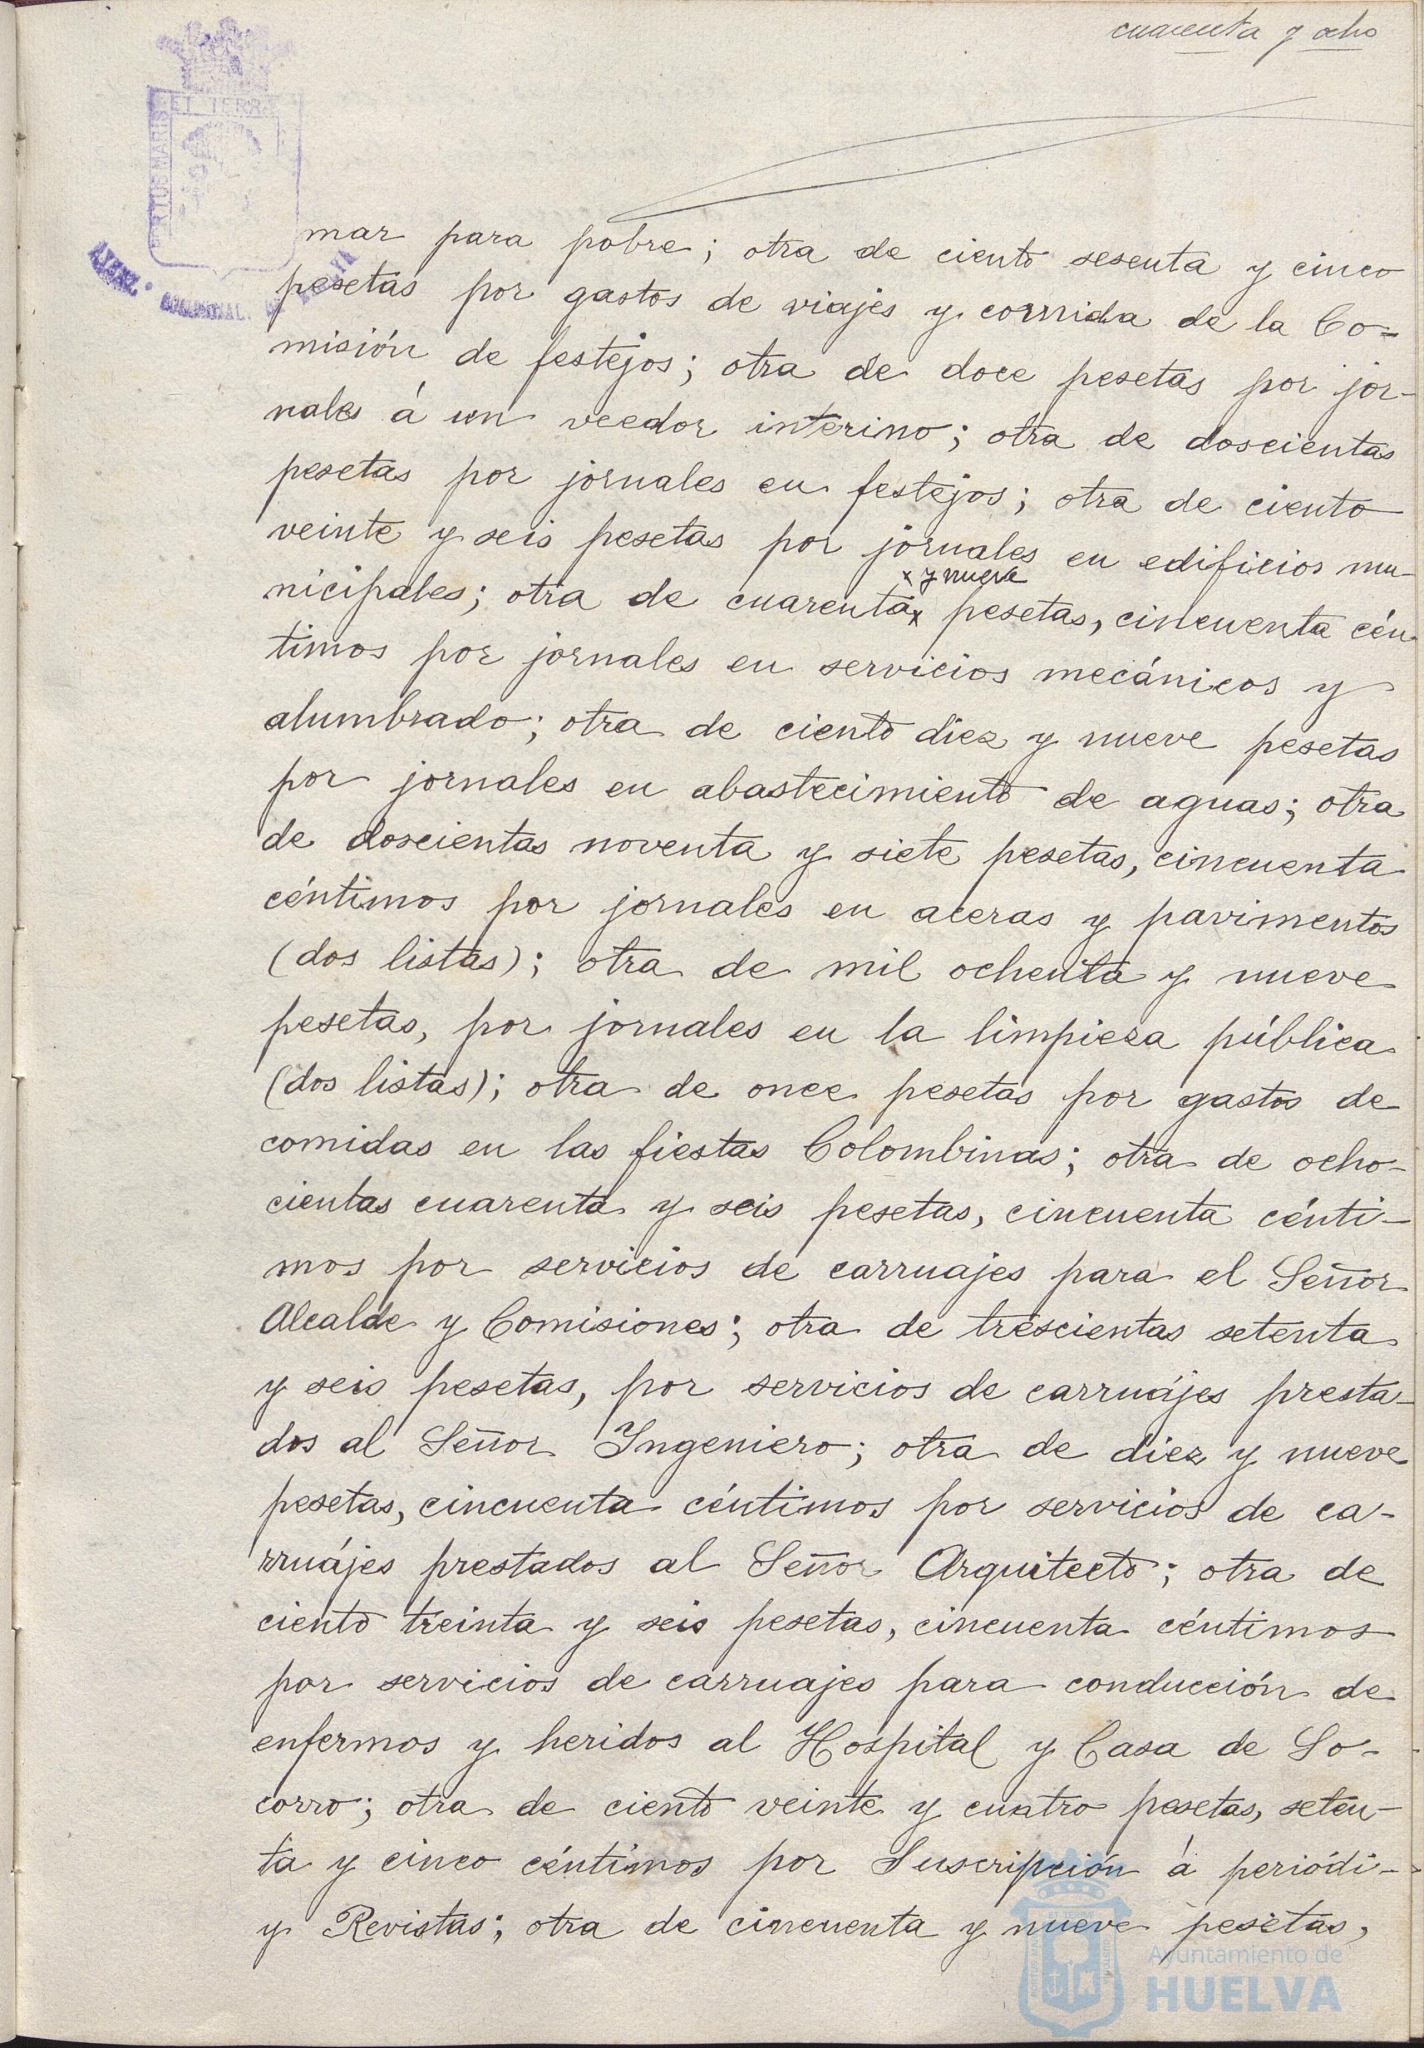 cuarenta y ocho
PORTUS MARIS
ET TERRA
mar para pobre; otra de ciento sesenta y cinco
pesetas por gastos de viajes y comida de la Co=
misión de festejos; otra de doce pesetas por jor-
nales á un veedor interino; otra de doscientas
pesetas por jornales en festejos; otra de ciento
veinte y seis pesetas por jornales en edificios mu-
x y nueve
nicipales; otra de cuarenta x pesetas, cincuenta cén-
timos por jornales en servicios mecánicos y
alumbrado; otra de ciento diez y nueve pesetas
por jornales en abastecimiento de aguas; otra
de doscientas noventa y siete pesetas, cincuenta
céntimos por jornales en aceras y pavimentos
(dos listas); otra de mil ochenta y nueve
pesetas, por jornales en la limpieza pública
(dos listas); otra de once pesetas por gastos de
comidas en las fiestas Colombinas; otra de ocho-
cientas cuarenta y seis pesetas, cincuenta cénti-
mos por servicios de carruajes para el Señor
Alcalde y Comisiones; otra de trescientas setenta
y seis pesetas, por servicios de carruájes presta-
dos al Señor Ingeniero; otra de diez y nueve
pesetas, cincuenta céntimos por servicios de ca-
rruájes prestados al Señor Arquitecto; otra de
ciento treinta y seis pesetas, cincuenta céntimos
por servicios de carruajes para conducción de
enfermos y heridos al Hospital y Casa de So-
corro; otra de ciento veinte y cuatro pesetas, seten-
ta y cinco céntimos por Suscripción á periódi-
y Revistas; otra de cincuenta y nueve pesetas,
Ayuntamiento de
HUELVA